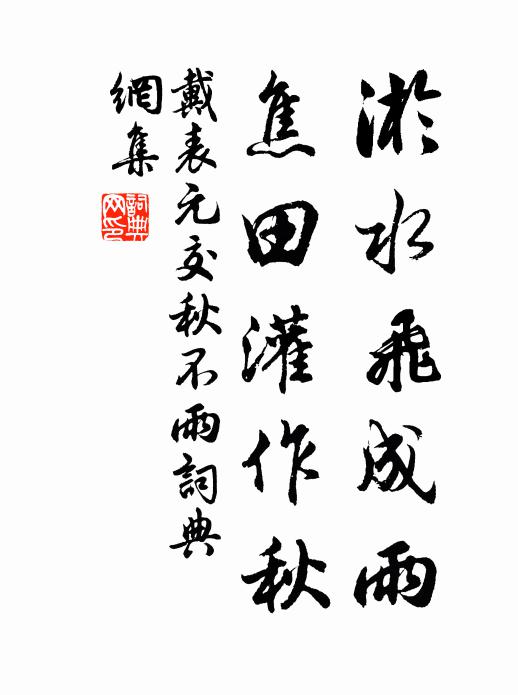 淤水飛成雨
焦田灌作秋
戴表元交秋不雨詞典
網集
詞典
网印